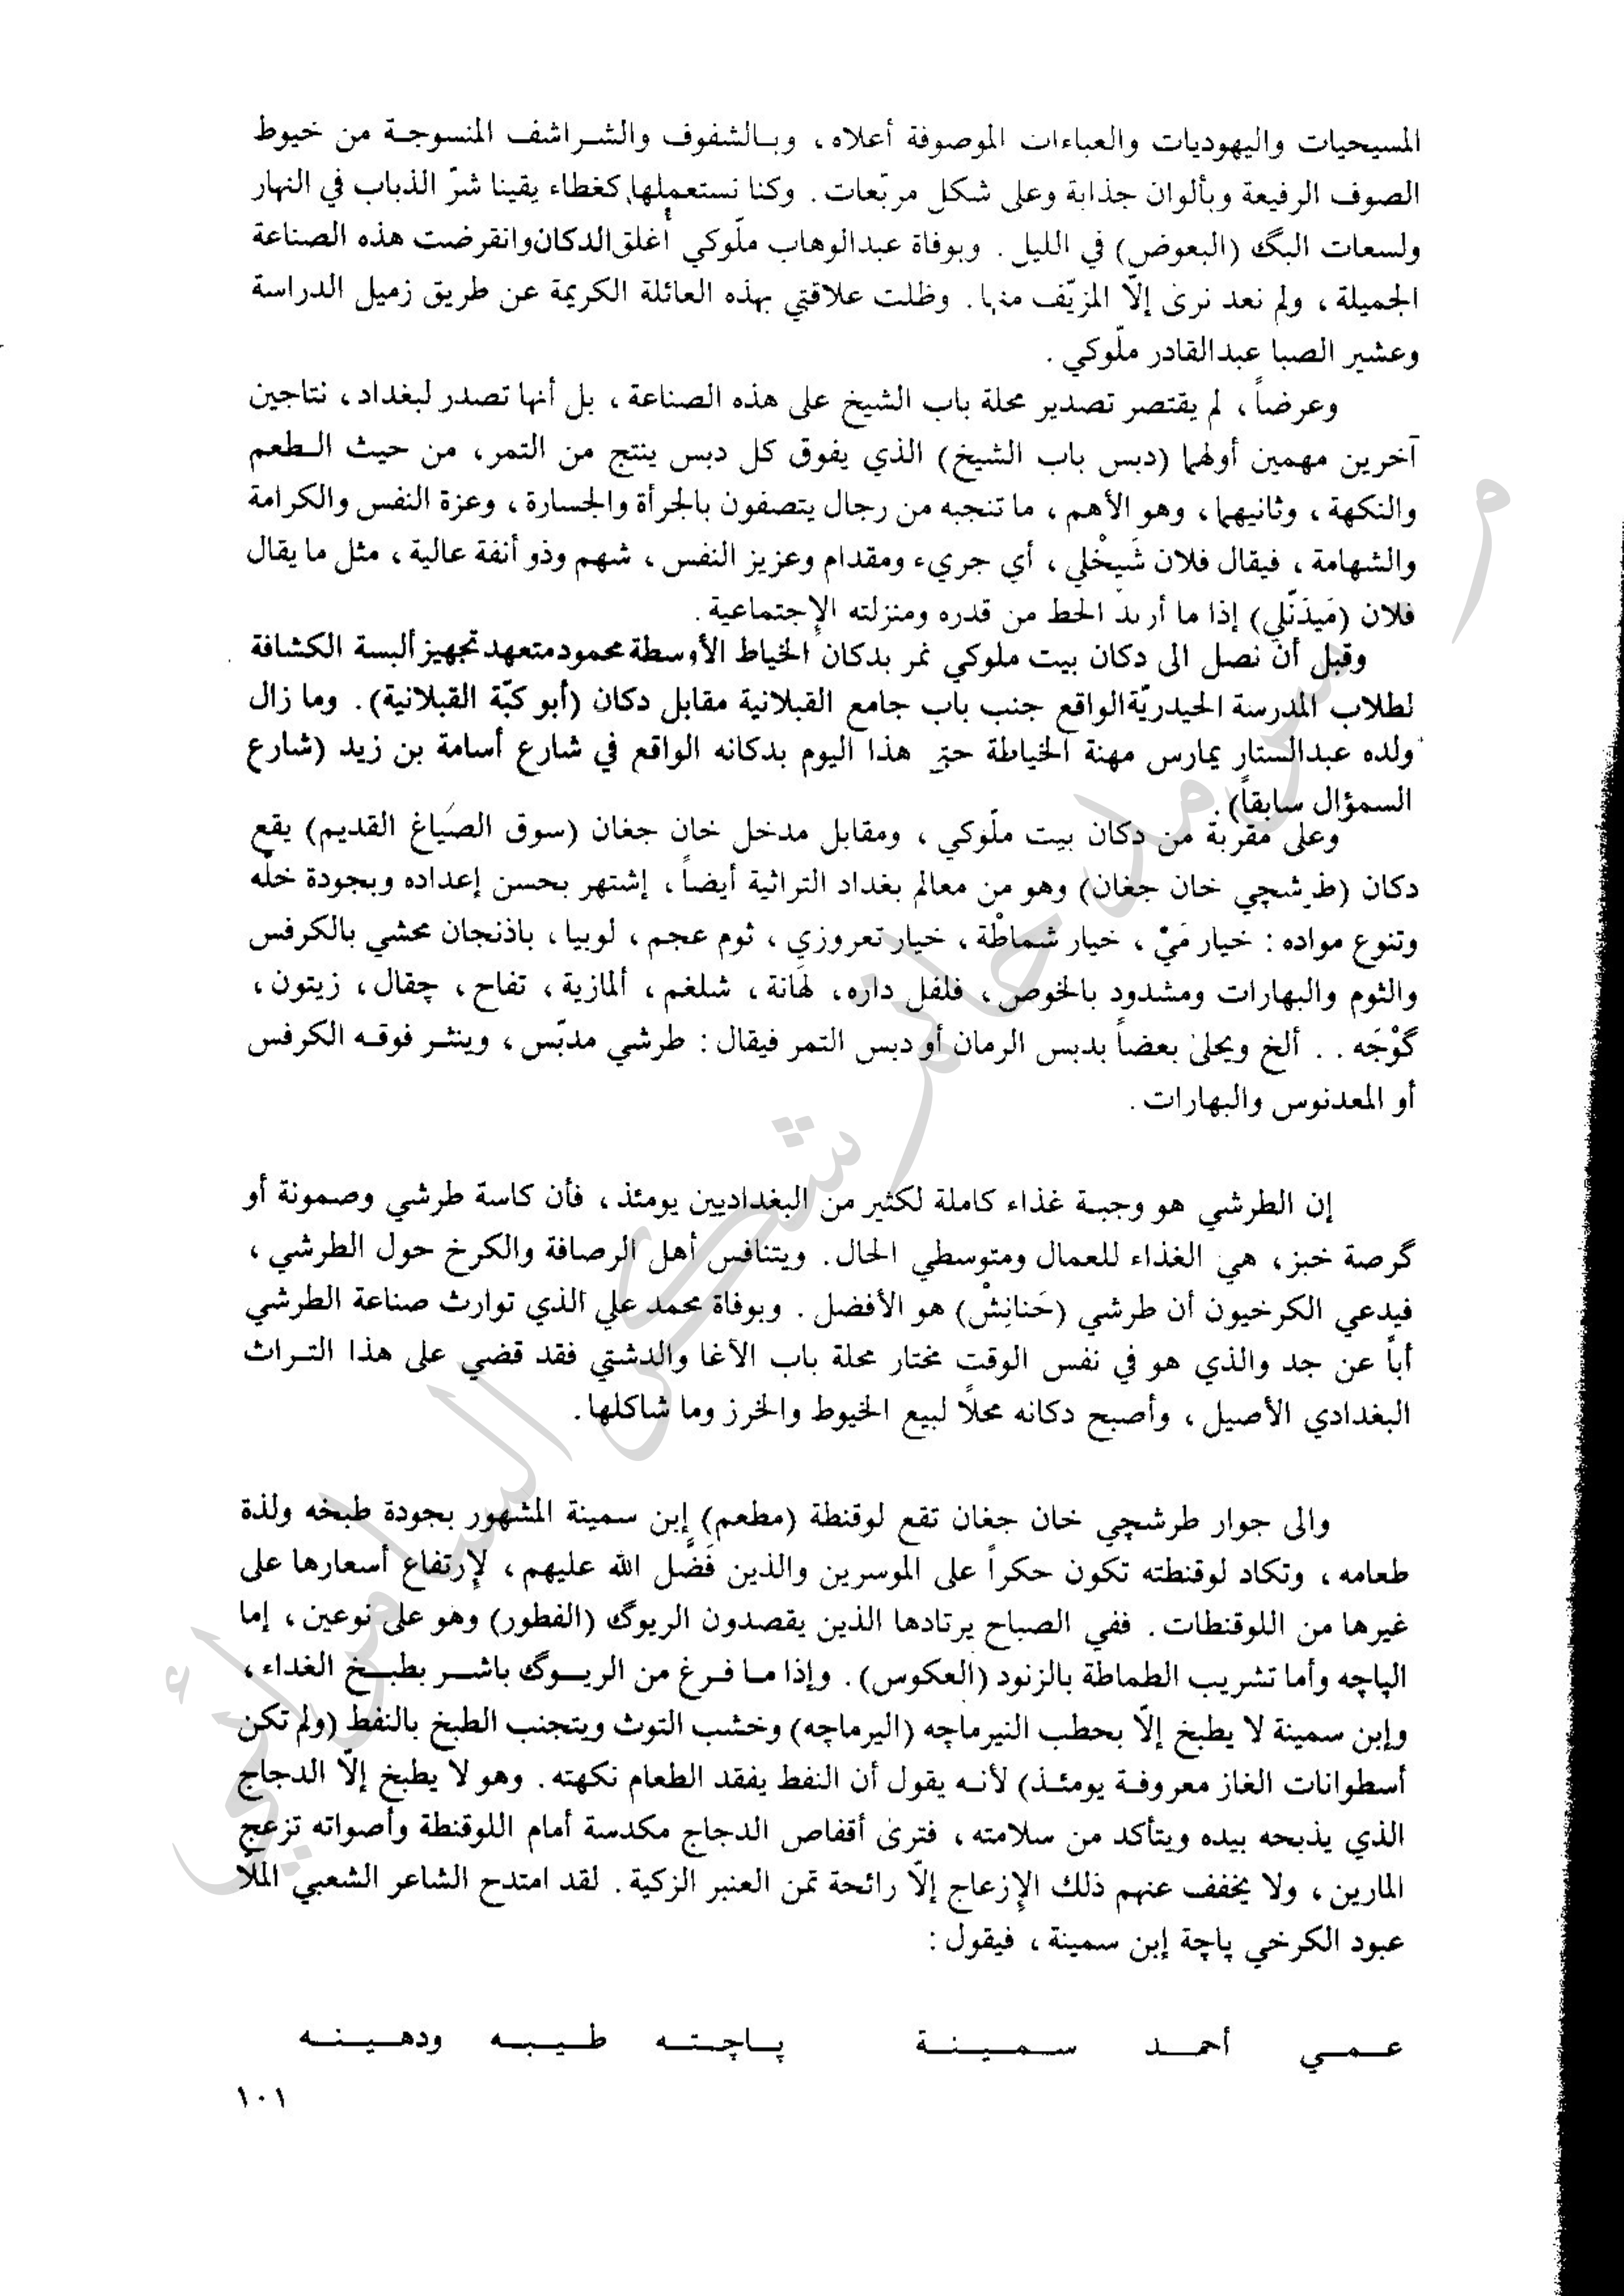 المسيحيات واليهوديات والعباءات الموصوفة أعلاه ، وبـالشفوف والشـراشف المنسوجـة من خيوط
الصوف الرفيعة وبألوان جذابة وعلى شكل مربّعات . وكنا نستعملها كغطاء يقينا شرّ الذباب في النهار
ولسعات البگ (البعوض) في الليل . وبوفاة عبدالوهاب ملّوكي أُغلق الدكان وانقرضت هذه الصناعة
الجميلة ، ولم نعد نرى إلّا المزيّف منها . وظلت علاقتي بهذه العائلة الكريمة عن طريق زميل الدراسة
وعشير الصبا عبدالقادر ملّوكي .
وعرضاً ، لم يقتصر تصدير محلة باب الشيخ على هذه الصناعة ، بل أنها تصدر لبغداد ، نتاجين
آخرين مهمين أولهما (دبس باب الشيخ) الذي يفوق كل دبس ينتج من التمر ، من حيث الـطعم
والنكهة ، وثانيهما ، وهو الأهم ، ما تنجبه من رجال يتصفون بالجرأة والجسارة ، وعزة النفس والكرامة
والشهامة ، فيقال فلان شَيخْلي ، أي جريء ومقدام وعزيز النفس ، شهم وذو أنفة عالية ، مثل ما يقال
فلان (مَيدَنّلي) إذا ما أريد الحط من قدره ومنزلته الإجتماعية .
وقبل أن نصل الى دكان بيت ملوكي نمر بدكان الخياط الأوسطة محمود متعهد تجهيز ألبسة الكشافة
لطلاب المدرسة الحيدريّة الواقع جنب باب جامع القبلانية مقابل دكان (أبو كبّة القبلانية) . وما زال
ولده عبدالستار يمارس مهنة الخياطة حتى هذا اليوم بدكانه الواقع في شارع أسامة بن زيد (شارع
السمؤال سابقاً) .
وعلى مقربة من دكان بيت ملّوكي ، ومقابل مدخل خان جغان (سوق الصَياغ القديم) يقع
دكان (طرشچي خان جغان) وهو من معالم بغداد التراثية أيضاً ، إشتهر بحسن إعداده وبجودة خلّه
وتنوع مواده : خيار مَيْ ، خيار شماطْة ، خيار تعروزي ، ثوم عجم ، لوبيا ، باذنجان محشي بالكرفس
والثوم والبهارات ومشدود بالخوص ، فلفل داره ، لهَانة ، شلغم ، ألمازية ، تفاح ، چقال ، زيتون ،
گوْجَه . . ألخ ويحلى بعضاً بدبس الرمان أو دبس التمر فيقال : طرشي مدبّس ، وينثـر فوقـه الكرفس
أو المعدنوس والبهارات .
إن الطرشي هو وجبـة غذاء كاملة لكثير من البغداديين يومئذ ، فأن كاسة طرشي وصمونة أو
گرصة خبز ، هي الغذاء للعمال ومتوسطي الحال . ويتنافس أهل الرصافة والكرخ حول الطرشي ،
فيدعي الكرخيون أن طرشي (حَنانِشْ) هو الأفضل . وبوفاة محمد علي الذي توارث صناعة الطرشي
أباً عن جد والذي هو في نفس الوقت مختار محلة باب الأغا والدشتي فقد قضي على هذا التـراث
البغدادي الأصيل ، وأصبح دكانه محلاً لبيع الخيوط والخرز وما شاكلها .
والى جوار طرشچي خان جغان تقع لوقنطة (مطعم) إبن سمينة المشهور بجودة طبخه ولذة
طعامه ، وتكاد لوقنطته تكون حكراً على الموسرين والذين فَضَّل الله عليهم ، لإرتفاع أسعارها على
غيرها من اللوقنطات . ففي الصباح يرتادها الذين يقصدون الريوگ (الفطور) وهو على نوعين ، إما
الپاچه وأما تشريب الطماطة بالزنود (العكوس) . وإذا مـا فـرغ من الريـوگ باشـر بطبـخ الغداء ،
وإبن سمينة لا يطبخ إلّا بحطب النيرماچه (اليرماچه) وخشب التوث ويتجنب الطبخ بالنفط (ولم تكن
أسطوانات الغاز معروفـة يومئـذ) لأنـه يقول أن النفط يفقد الطعام نكهته . وهو لا يطبخ إلّا الدجاج
الذي يذبحه بيده ويتأكد من سلامته ، فترى أقفاص الدجاج مكدسة أمام اللوقنطة وأصواته تزعج
المارين ، ولا يخفف عنهم ذلك الإزعاج إلّا رائحة تمن العنبر الزكية . لقد امتدح الشاعر الشعبي الملّا
عبود الكرخي پاچة إبن سمينة ، فيقول :
عـمـي أحمـد سـمـيـنـة پـاچـتـه طـيـبـه ودهـيـنـه
١٠١
سرمد حاتم شكر السامرائي